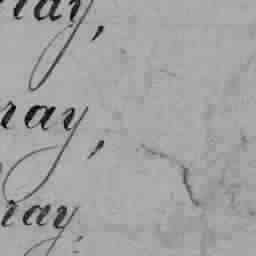 ray,
ray,
ray